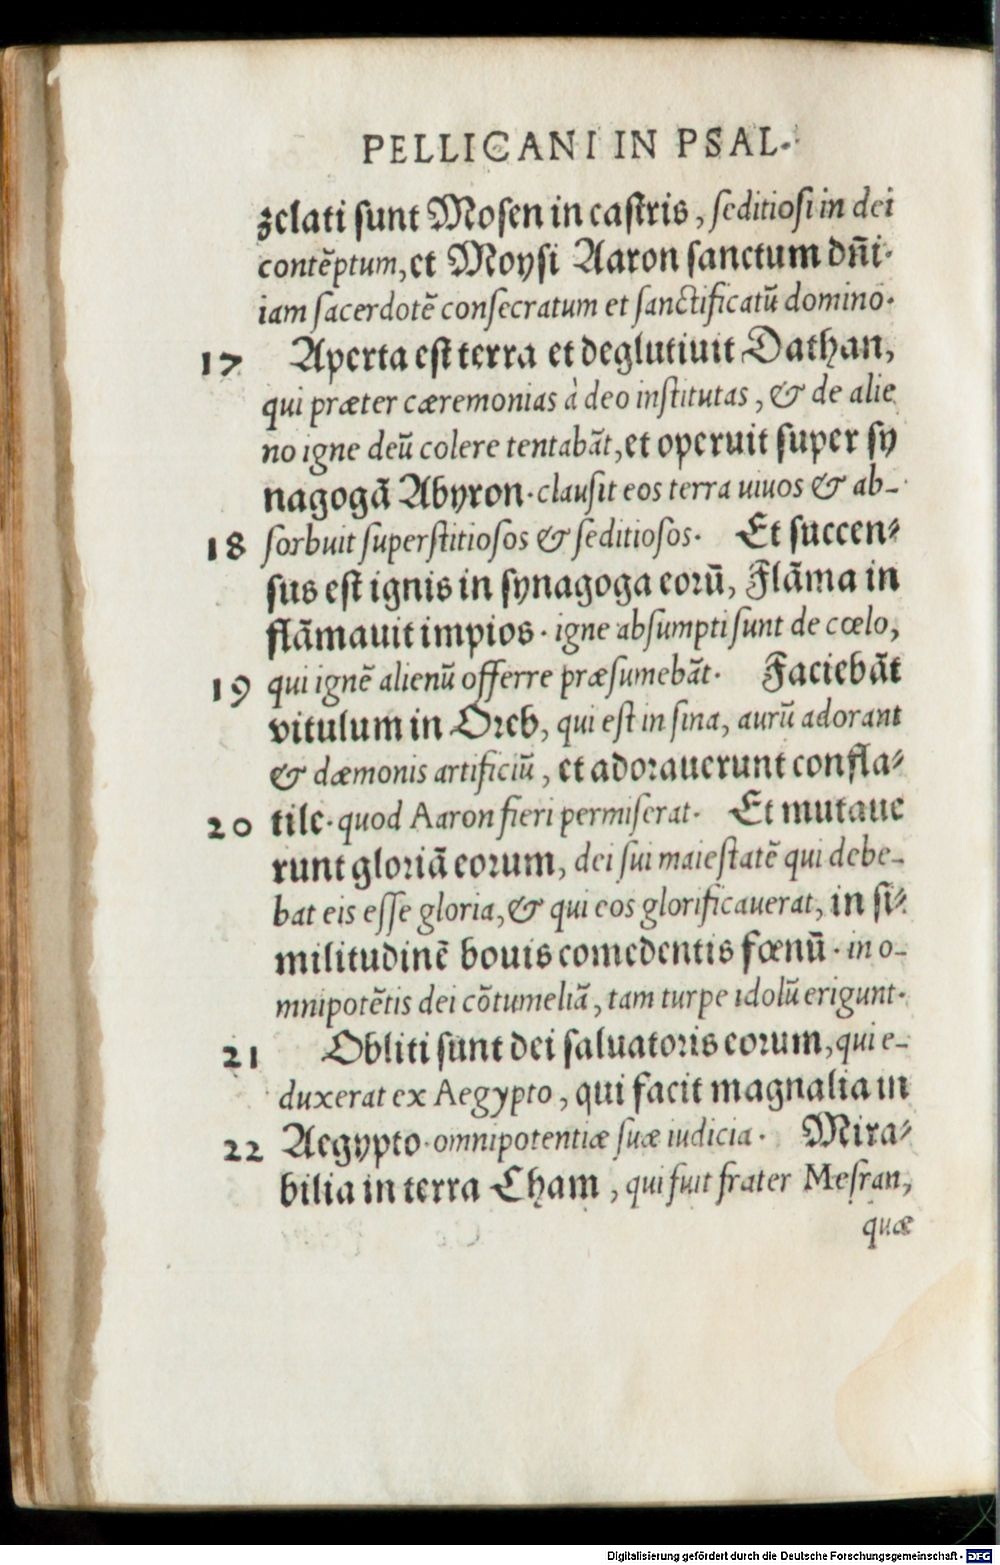 PELLICANI IN PSAL.
zelati sunt Mosen in castris, seditiosi in dei
contẽptum, et Moysi Aaron sanctum dñi.
iam sacerdotẽ consecratum et sanctificatũ domino.
17 Aperta est terra et deglutiuit Dathan,
qui præter cæremonias à deo institutas, & de alie
no igne deũ colere tentabãt, et operuit super sy
nagogã Abyron. clausit eos terra uiuos & ab-
18 sorbuit superstitiosos & seditiosos. Et succen-
sus est ignis in synagoga eorũ, Flãma in
flãmauit impios. igne absumpti sunt de cœlo,
19 qui ignẽ alienũ offerre præsumebãt. Faciebãt
vitulum in Oreb, qui est in sina, aurũ adorant
& dæmonis artificiũ, et adorauerunt confla-
20 tile. quod Aaron fieri permiserat. Et mutaue
runt gloriã eorum, dei sui maiestatẽ qui debe-
bat eis esse gloria, & qui eos glorificauerat, in si-
militudinẽ bouis comedentis fœnũ. in o-
mnipotẽtis dei cõtumeliã, tam turpe idolũ erigunt.
21 Obliti sunt dei saluatoris eorum, qui e-
duxerat ex Aegypto, qui facit magnalia in
22 Aegypto. omnipotentiæ suæ iudicia. Mira-
bilia in terra Cham, qui fuit frater Mesran,
quæ
Digitalisierung gefördert durch die Deutsche Forschungsgemeinschaft - DFG